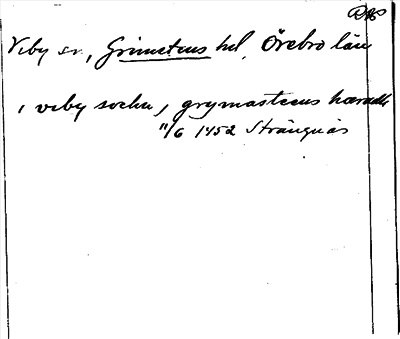 DMS
Viby sn, Grimstens hd, Örebro län
i viby sochn, i grymasteens hæradh
11/6 1452 Strängnäs